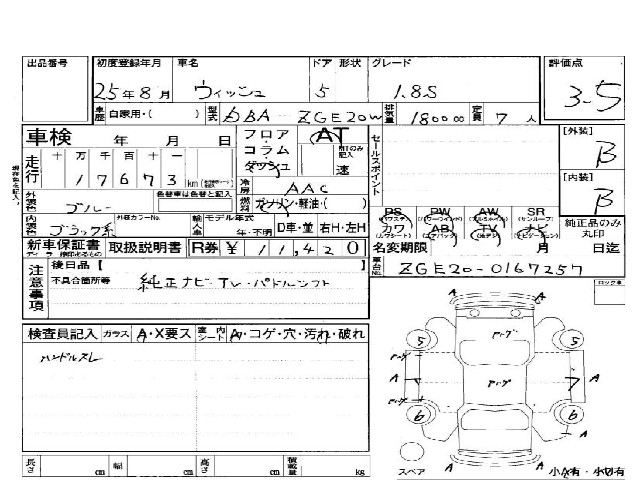 出品番号 初度登録年月 車名 ドア 形状 グレード 評価点
25年8月 ウィッシュ 5 1.8S 3-5
車歴 自家用・( ) 型式 DBA-ZGE20W 排気量 1800cc 定員 7人
車検 年 月 日 フロア・コラム・ダッシュ AT MTのみ記入 速 セールスポイント
走行 十 万 千 百 十 一
17673 km
冷房 AAC
外装色 ブルー 色替車は色替と記入 燃料 ガソリン・軽油・( )
内装色 ブラック系 外装カラーNo. 輸入車 モデル年式 年・不明 D車・並 右H・左H
新車保証書 取扱説明書 R券 ¥11,420
[外装] B
[内装] B
PS PW AW SR
カワ AB TV ナビ
純正品のみ丸印
名変期限 月 日迄
車台No. ZGE20-0167257
注意事項 後日品【 】
不具合箇所等 純正ナビ・TV・パドルシフト
ロック車
検査員記入 ガラス A・X要ス 室内シート A・コゲ・穴・汚れ・破れ
ハンドルスレ
A
5 5
A A
6 6
A A
スペア
小A有・小凹有
長さ cm 幅 cm 高さ cm 積載量 kg